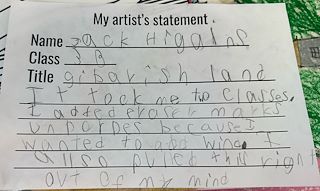 My artist's statement
Name Jack Higgins
Class 3B
Title gibarish land
It took me two classes.
I added eraser marks
unporpes because I
wanted to add wind. I
allso pulled this right
out of my mind